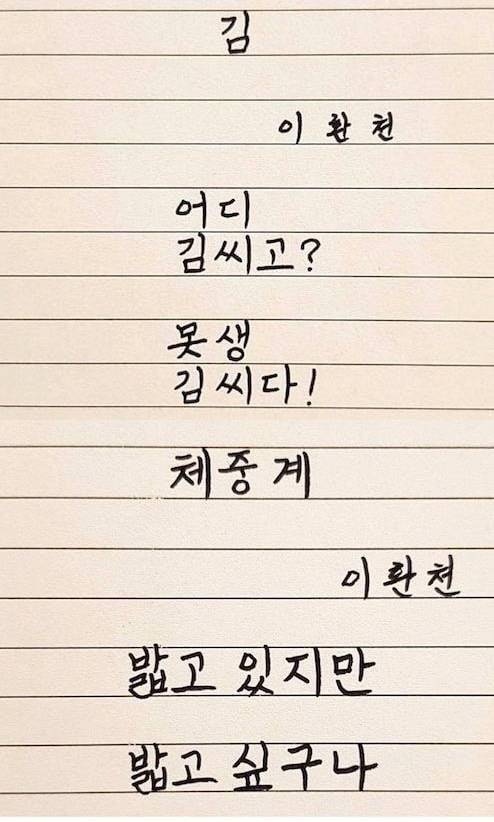 김
이환천
어디
김씨고?
못생
김씨다!
체중계
이환천
밟고 있지만
밟고 싶구나